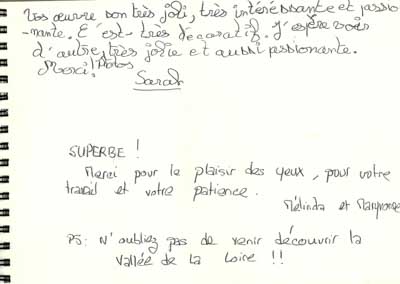 Vos œuvre son très joli, très intéréssante et passio
-nante. C'est très décoratif. J'espère voir
d'autre, très jolie et aussi passionante.
Merci! Photos
Sarah
SUPERBE !
Merci pour le plaisir des yeux, pour votre
travail et votre patience.
Mélinda et
PS: N'oubliez pas de venir découvrir la
Vallée de la Loire !!